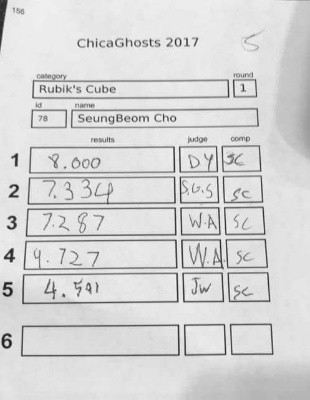 156
ChicaGhosts 2017
5
category
round
Rubik's Cube
1
id
name
78
SeungBeom Cho
results
judge
comp
1
8.000
DY
SC
2
7.334
S.G.S
SC
3
7.287
W.A
SC
4
W.A.
SC
5
4.591
JW
SC
6